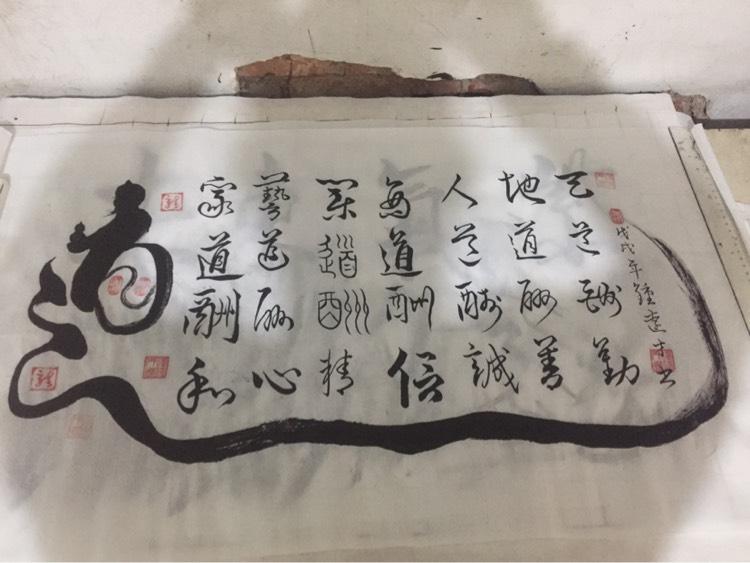 戊戌年鐘達才书
天道酬勤
地道酬善
人道酬誠
商道酬信
業道酬精
藝道酬心
家道酬和
道